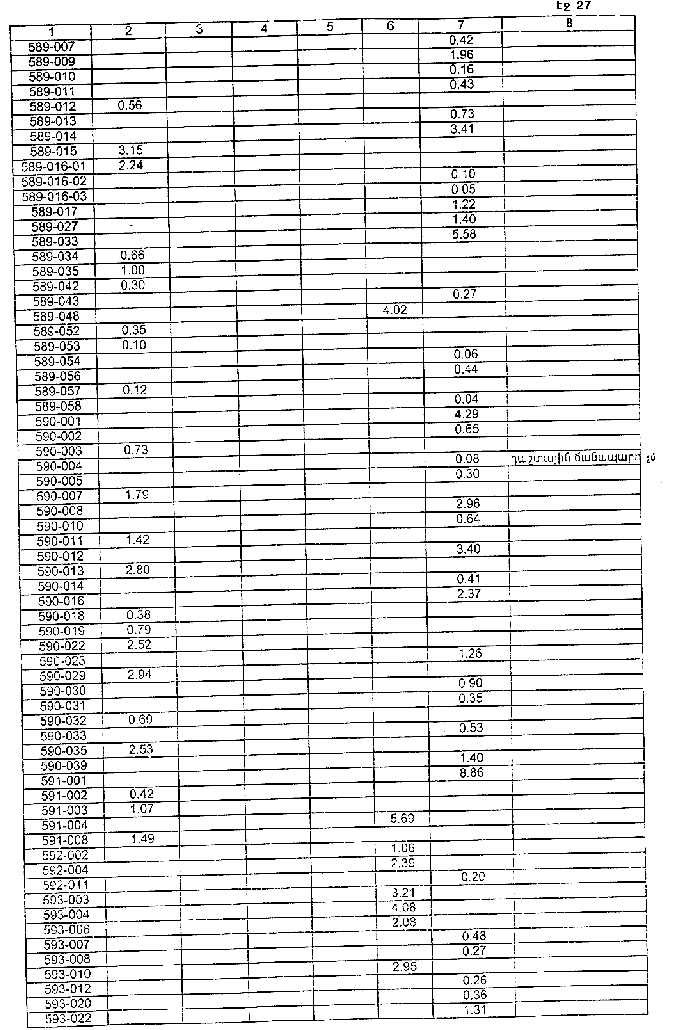 Էջ 27
1 2 3 4 5 6 7 8
589-007 0.42
589-009 1.96
589-010 0.16
589-011 0.43
589-012 0.56
589-013 0.73
589-014 3.41
589-015 3.15
589-016-01 2.24
589-016-02 0.10
589-016-03 0.05
589-017 1.22
589-027 1.40
589-033 5.58
589-034 0.66
589-035 1.00
589-042 0.30
589-043 0.27
589-048 4.02
589-052 0.35
589-053 0.10
589-054 0.06
589-056 0.44
589-057 0.12
589-058 0.04
590-001 4.29
590-002 0.65
590-003 0.73
590-004 0.08 դաշտային ճանապարհ
590-005 0.30
590-007 1.79
590-008 2.96
590-010 0.64
590-011 1.42
590-012 3.40
590-013 2.80
590-014 0.41
590-016 2.37
590-018 0.38
590-019 0.79
590-022 2.52
590-023 1.26
590-029 2.94
590-030 0.90
590-031 0.35
590-032 0.60
590-033 0.53
590-035 2.53
590-039 1.40
591-001 8.86
591-002 0.42
591-003 1.07
591-004 5.69
591-008 1.49
592-002 1.06
592-004 2.38
592-011 0.20
593-003 3.21
593-004 4.08
593-006 2.08
593-007 0.48
593-008 0.27
593-010 2.95
593-012 0.26
593-020 0.36
593-022 1.31